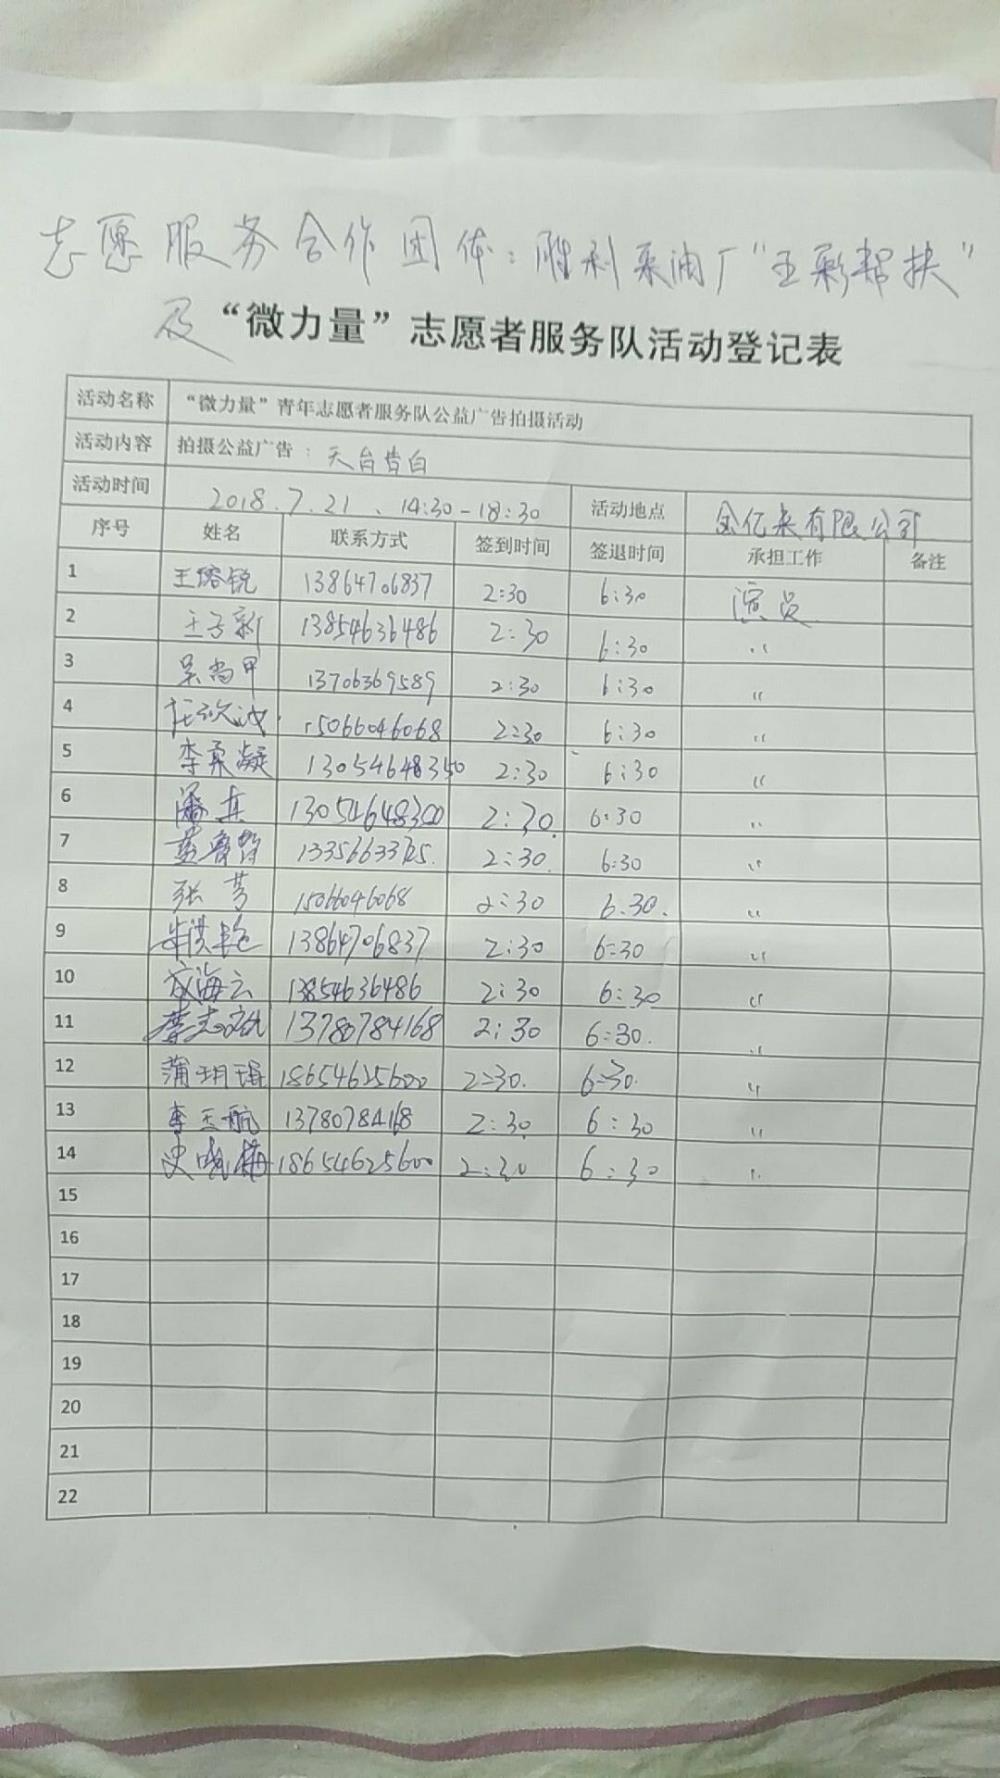 志愿服务合作团体：胜利采油厂“王彩帮扶”
及“微力量”志愿者服务队活动登记表
活动名称 “微力量”青年志愿者服务队公益广告拍摄活动
活动内容 拍摄公益广告：天台告白
活动时间 2018.7.21、14:30-18:30 活动地点 金亿来有限公司
序号 姓名 联系方式 签到时间 签退时间 承担工作 备注
1 王瑢锐 13864706837 2:30 6:30 演员
2 王子新 13854636486 2:30 6:30 〃
3 吴尚甲 13706369589 2:30 6:30 〃
4 15066046068 2:30 6:30 〃
5 李柔凝 13054648350 2:30 6:30 〃
6 潘真 2:30. 6:30 〃
7 2:30. 6:30 〃
8 张芳 15066046068 2:30 6.30. 〃
9 13864706837 2:30 6:30 〃
10 成海云 13854636486 2:30 6:30 〃
11 13780784168 2:30 6:30. 〃
12 蒲玥瑶 18654625600 2:30. 6:30. 〃
13 李玉航 13780784168 2:30 6:30 〃
14 史晓梅 18654625600 2:30 6:30 〃
15
16
17
18
19
20
21
22